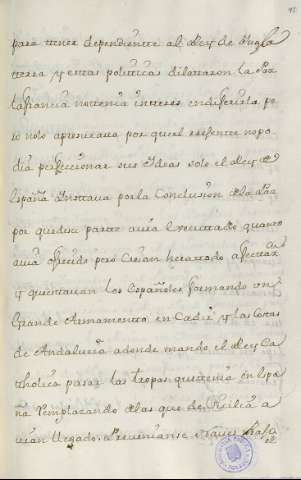 para tener dependiente al Rey de Ingla
terra y estas politicas dilataron la Paz
la francia no tenia interes en diferirla pe
ro no lo apresurava por que el presente no po
dia perfeccionar sus Ideas solo el Rey de
España Instava por la Conclusion de la Paz
por que de su parte avia Executado quanto
avia ofrecido pero
y que estavan los Españoles formando un
Grande Armamento en Cadiz y las Costas
de Andalucia adonde mando el Rey Ca
tholico pasar las tropas que tenia en Espa
ña Remplazando de las que de Sicilia a
vian llegado. Prevenianse Naves